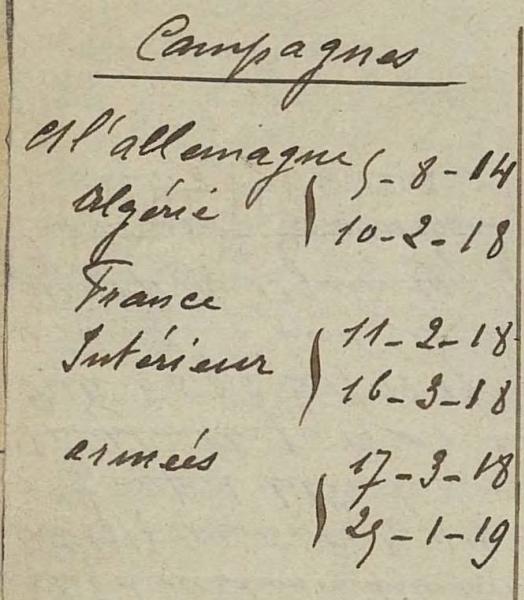 Campagnes
Ct l'allemagne 5-8-14
Algérie 10-2-18
France
11-2-18
Intérieur 16-3-18
armées 17-3-18
25-1-19